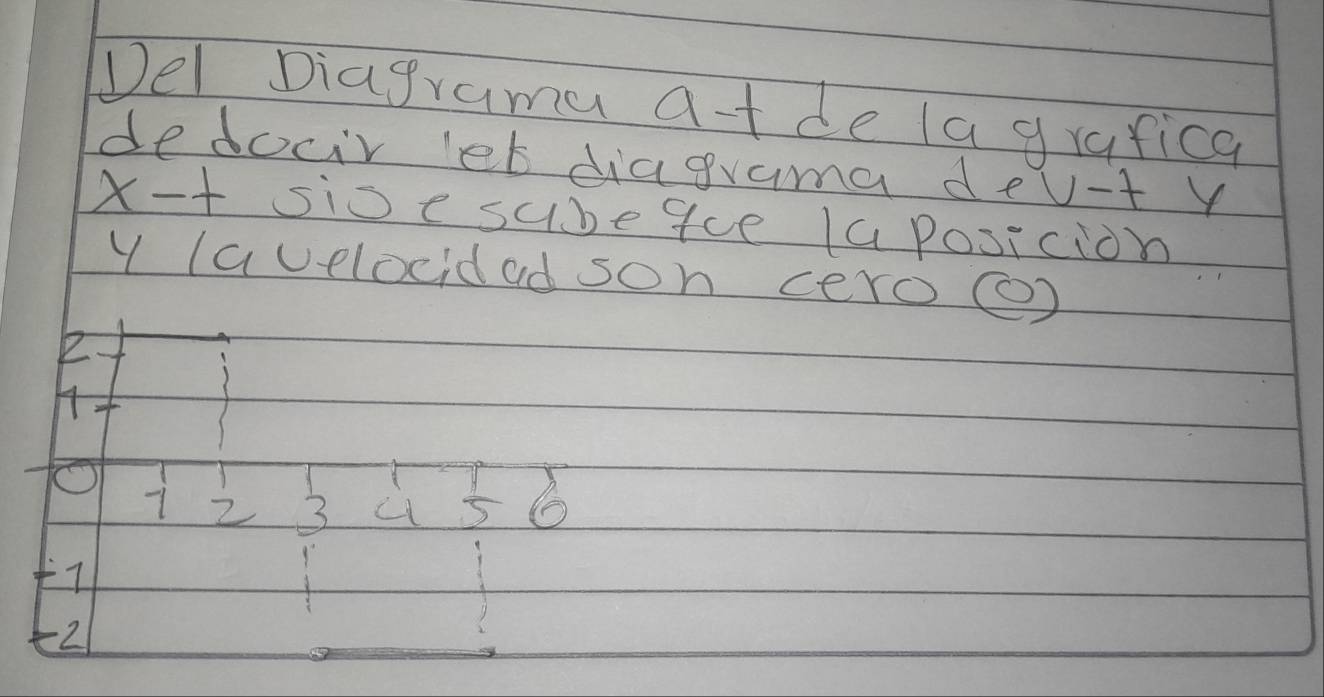 Del Diagrama a-t de la grafica
dedocir el diagrama de v-t y
x-t sise sabe que la posicion
y la velocidad son cero (0)
2
1
0 1 2 3 4 5 6
-1
-2